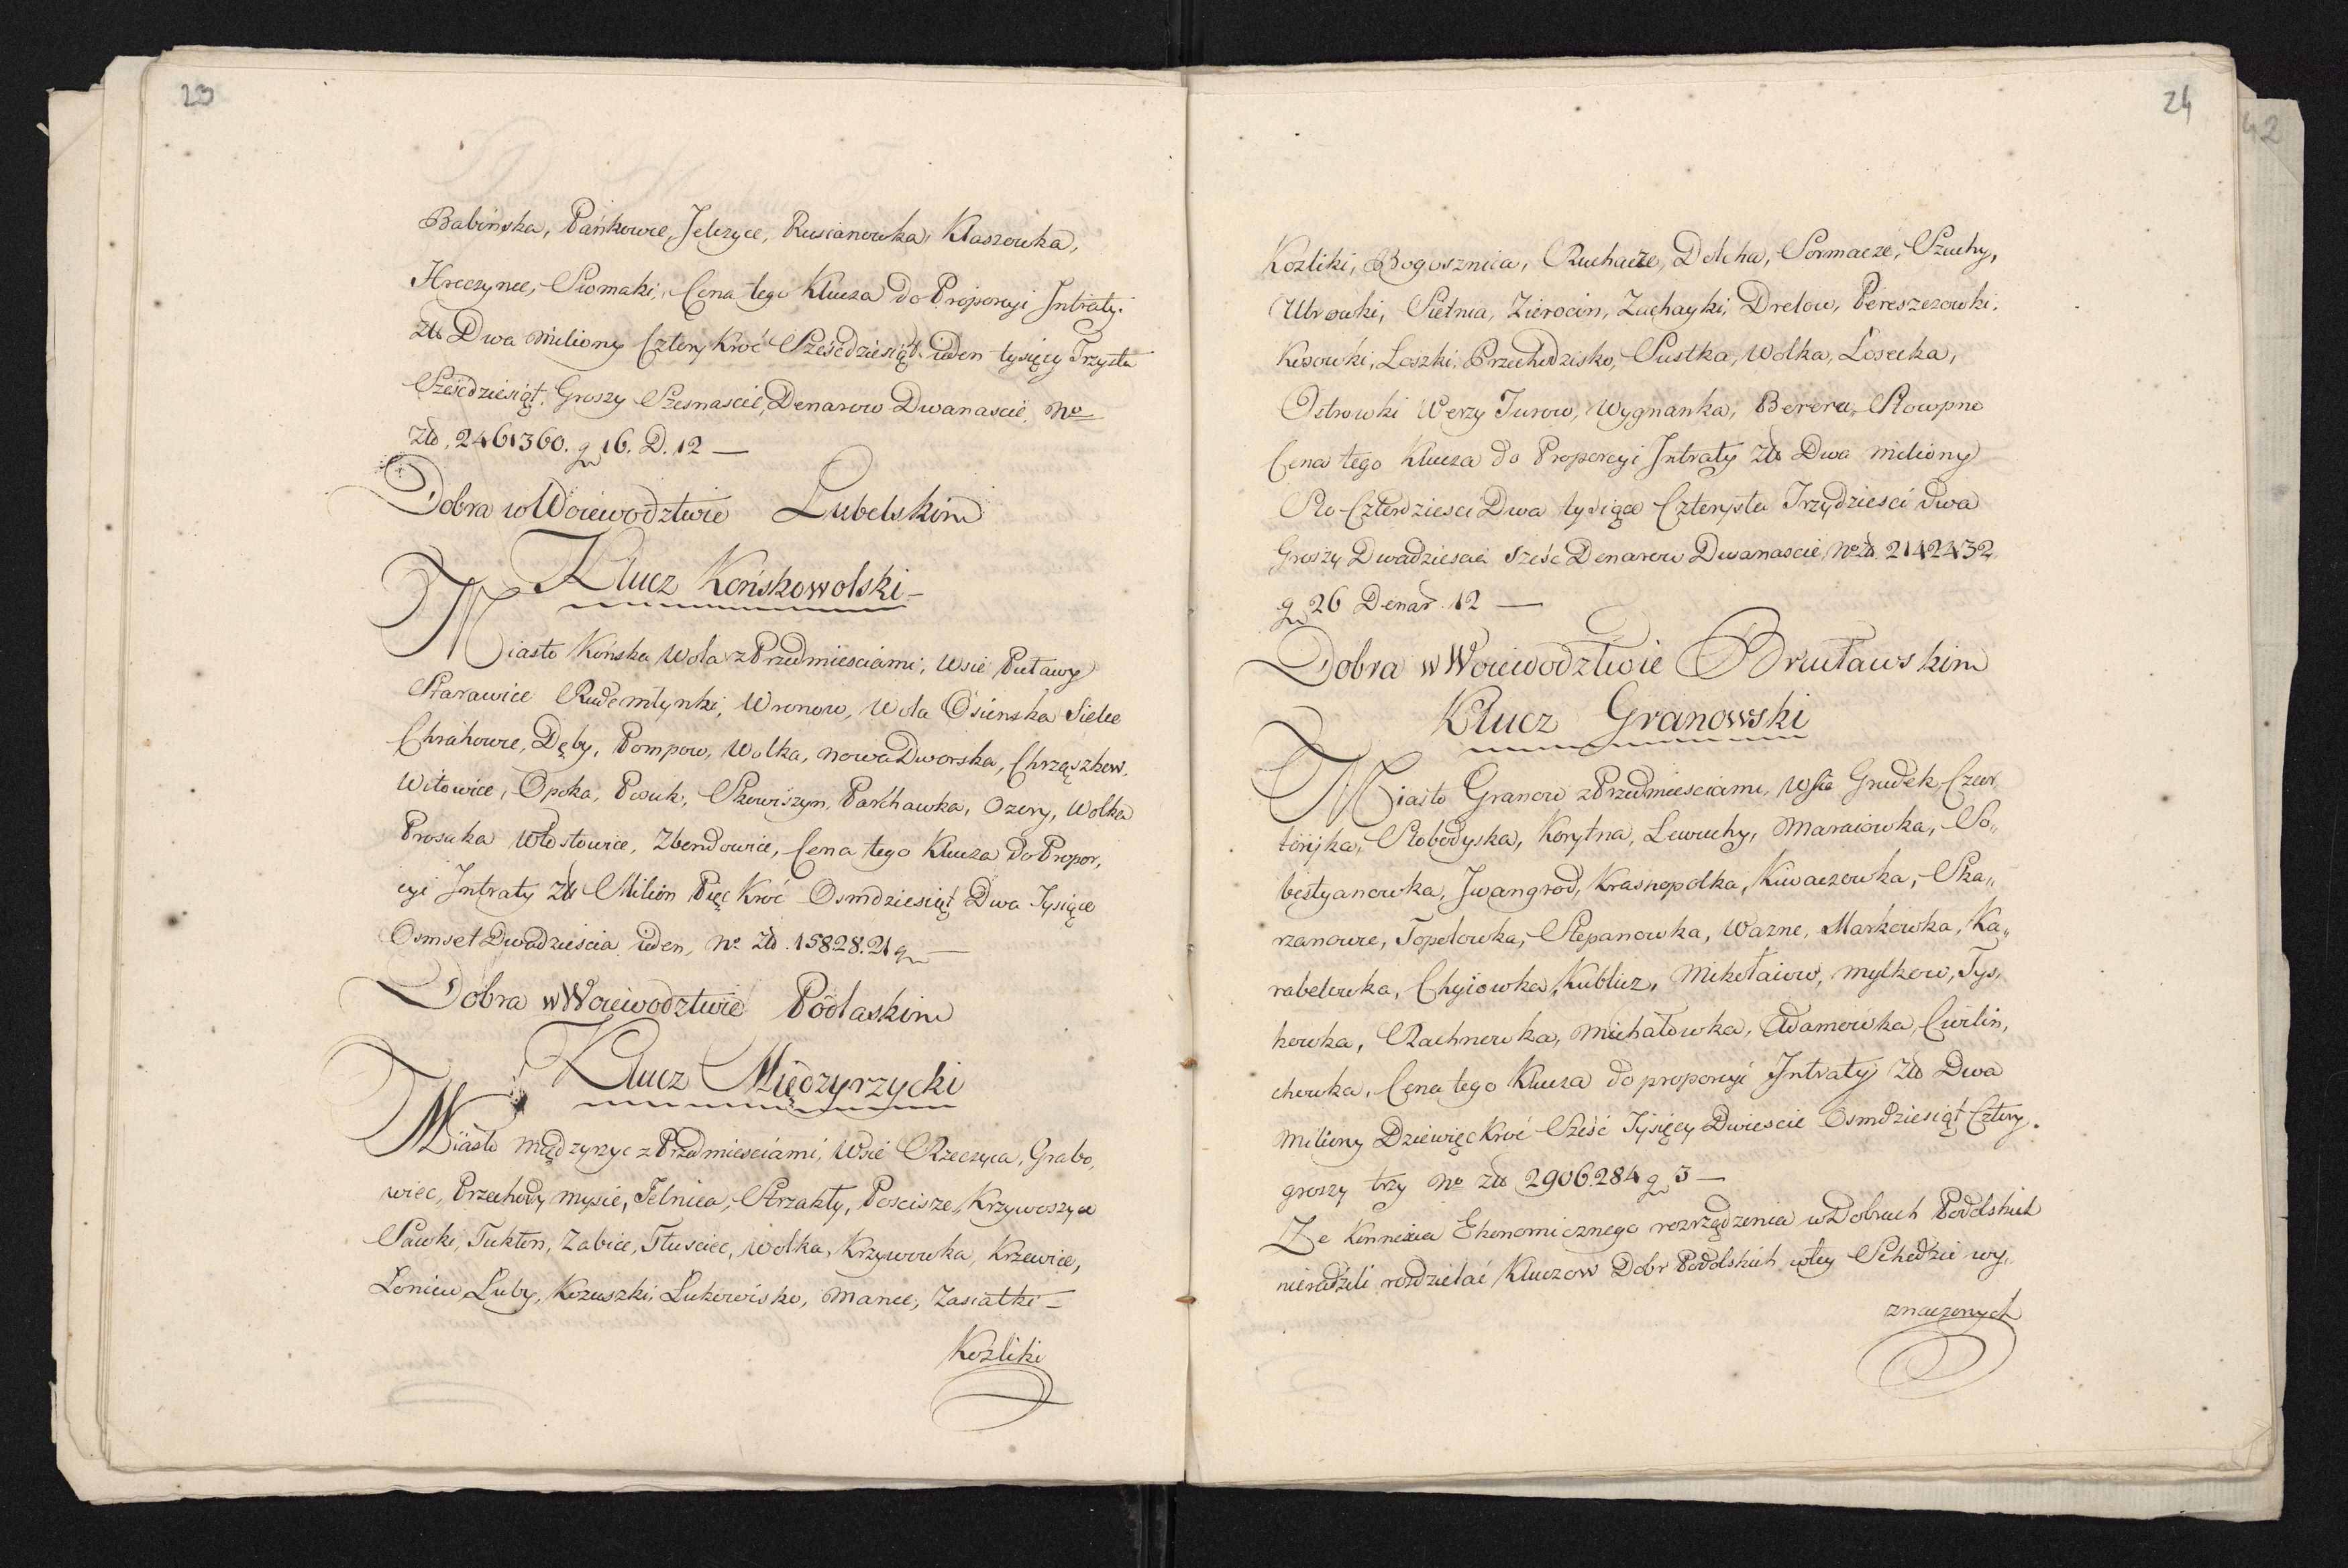 23
Babinska, Pańkowce, Jelczyce, Rusianowka, Kłaszowka,
Hreczynce, Siomaki, Cena tego Klucza do Proporcyi Intraty.
Zł Dwa Miliony Cztery Kroć Sześćdziesiąt ieden tysięcy Trzysta
Sześćdziesiąt. Groszy Szesnascie, Denarow Dwanascie, No
Zł. 2461360. g 16. D. 12 —
Dobra w Woiewodztwie Lubelskim
Klucz Końskowolski -
Miasto Końska Wola z Przedmiesciami, Wsie Puławy
Parawice Rudemłynki, Wronow, Wola Osienska Sielce
Chrahowce, Dęby, Pompow, Wolka, nowa Dworska, Chrząszkow,
Witowice, Opoka, Posuk, Skowiszyn, Parchawka, Ozory, Wolka
Prosuka Włostowice, Zbendowice, Cena tego Klucza do Propor,
cyi Intraty Zł Milion Pięc Kroć Osmdziesiąt Dwa Tysiące
Osmset Dwadziescia ieden, No Zł. 15828.21 g —
Dobra w Woiewodztwie Podlaskim
Klucz Międzyrzycki
Miasto Mędzyrzyc z Przedmiesciami, Wsie Rzeczyca, Grabo,
wiec, Przechody mysie, Jelnica, Strzakły, Poscisze, Krzywoszyce
Sawki, Tukten, Zabice, Tłusciec, Wolka, Krzywowka, Krzewice,
Loniew, Luby, Kozuszki, Lukowisko, Manie, Zasiatki —
Kozliki
24
42
Kozliki, Bogusznica, Ruchacze, Dołcha, Sormacze, Szachy,
Utrowki, Sietnia, Zierocin, Zachayki, Drelow, Pereszczowki.
Kosowki, Leszki, Przechodzisko, Pustka, Wolka, Losecka,
Ostrowki Werzy Turow, Wygnanka, Berera, Słowpne
Cena tego Klucza do Proporcyi Intraty Zł Dwa miliony
Sto Czterdziesci Dwa tysiące Czterysta Trzydziesci dwa
Groszy Dwadziescia Sześc Denarow Dwanascie, No Zł. 2142432,
g 26 Denar. 12 —
Dobra w Woiewodztwie Bracławskim
Klucz Granowski
Miasto Granow z Przedmiesciami, Wsie Grudek, Czer
toryjka, Słobodyska, Korytna, Lewuchy, Maraiowka, So„
bestyanowka, Jwangrod, Krasnopolka, Kiwaczowka, Ska„
rzanowce, Topolowka, Stepanowka, Wazne, Markowka, Ka„
rabelowka, Chyiowka, Kublicz, Mikołaiow, Mylkow, Tys,
kowka, Rachnowka, Michałowka, Adamowka, Cwilin,
chowka, Cena tego Klucza do proporcyi Intraty Zł Dwa
Miliony Dziewięc Kroć Sześć Tysięcy Dwiescie Osmdziesiąt Cztery.
groszy trzy No zł 2906284 g 3 —
Ze Konnexia Ekonomicznego rozrządzenia w Dobrach Podolskich
nieradzili rozdzielać Kluczow Dobr Podolskich w tey Schedzie wy„
znaczonych